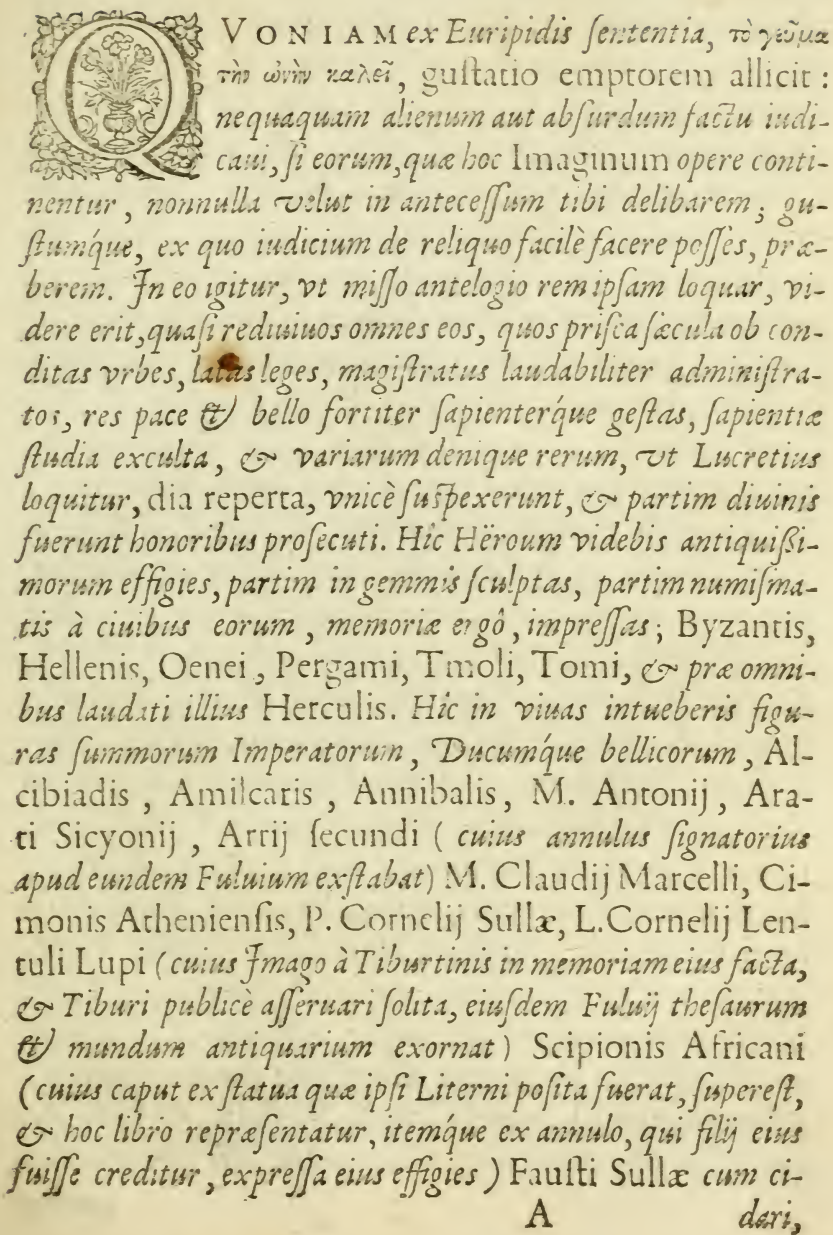 QVONIAM ex Euripidis ſententia, τὸ γεῦμα
τὴν ὠνὴν καλεῖ, guſtatio emptorem allicit:
nequaquam alienum aut abſurdum factu iudi-
caui, ſi eorum, quæ hoc Imaginum opere conti-
nentur, nonnulla velut in anteceſſum tibi delibarem; gu-
ſtumq́ue, ex quo iudicium de reliquo facilè facere poſſes, præ-
berem. In eo igitur, vt miſſo antelogio rem ipſam loquar, vi-
dere erit, quaſi rediuiuos omnes eos, quos priſca ſæcula ob con-
ditas vrbes, latas leges, magiſtratus laudabiliter adminiſtra-
tos, res pace & bello fortiter ſapienterq́ue geſtas, ſapientiæ
ſtudia exculta, & variarum denique rerum, vt Lucretius
loquitur, dia reperta, vnicè ſuſpexerunt, & partim diuinis
fuerunt honoribus proſecuti. Hîc Hëroum videbis antiquißi-
morum effigies, partim in gemmis ſculptas, partim numiſma-
tis à ciuibus eorum, memoriæ ergô, impreſſas; Byzantis,
Hellenis, Oenei, Pergami, Tmoli, Tomi, & præ omni-
bus laudati illius Herculis. Hîc in viuas intueberis figu-
ras ſummorum Imperatorum, Ducumq́ue bellicorum, Al-
cibiadis, Amilcaris, Annibalis, M. Antonij, Ara-
ti Sicyonij, Arrij ſecundi (cuius annulus ſignatorius
apud eundem Fuluium exſtabat) M. Claudij Marcelli, Ci-
monis Athenienſis, P. Cornelij Sullæ, L. Cornelij Len-
tuli Lupi (cuius Imago à Tiburtinis in memoriam eius facta,
& Tiburi publicè aſſeruari ſolita, eiuſdem Fuluij theſaurum
& mundum antiquarium exornat) Scipionis Africani
(cuius caput ex ſtatua quæ ipſi Literni poſita fuerat, ſupereſt,
& hoc libro repræſentatur, itemq́ue ex annulo, qui filij eius
fuiſſe creditur, expreſſa eius effigies) Fauſti Sullæ cum ci-
A dari,